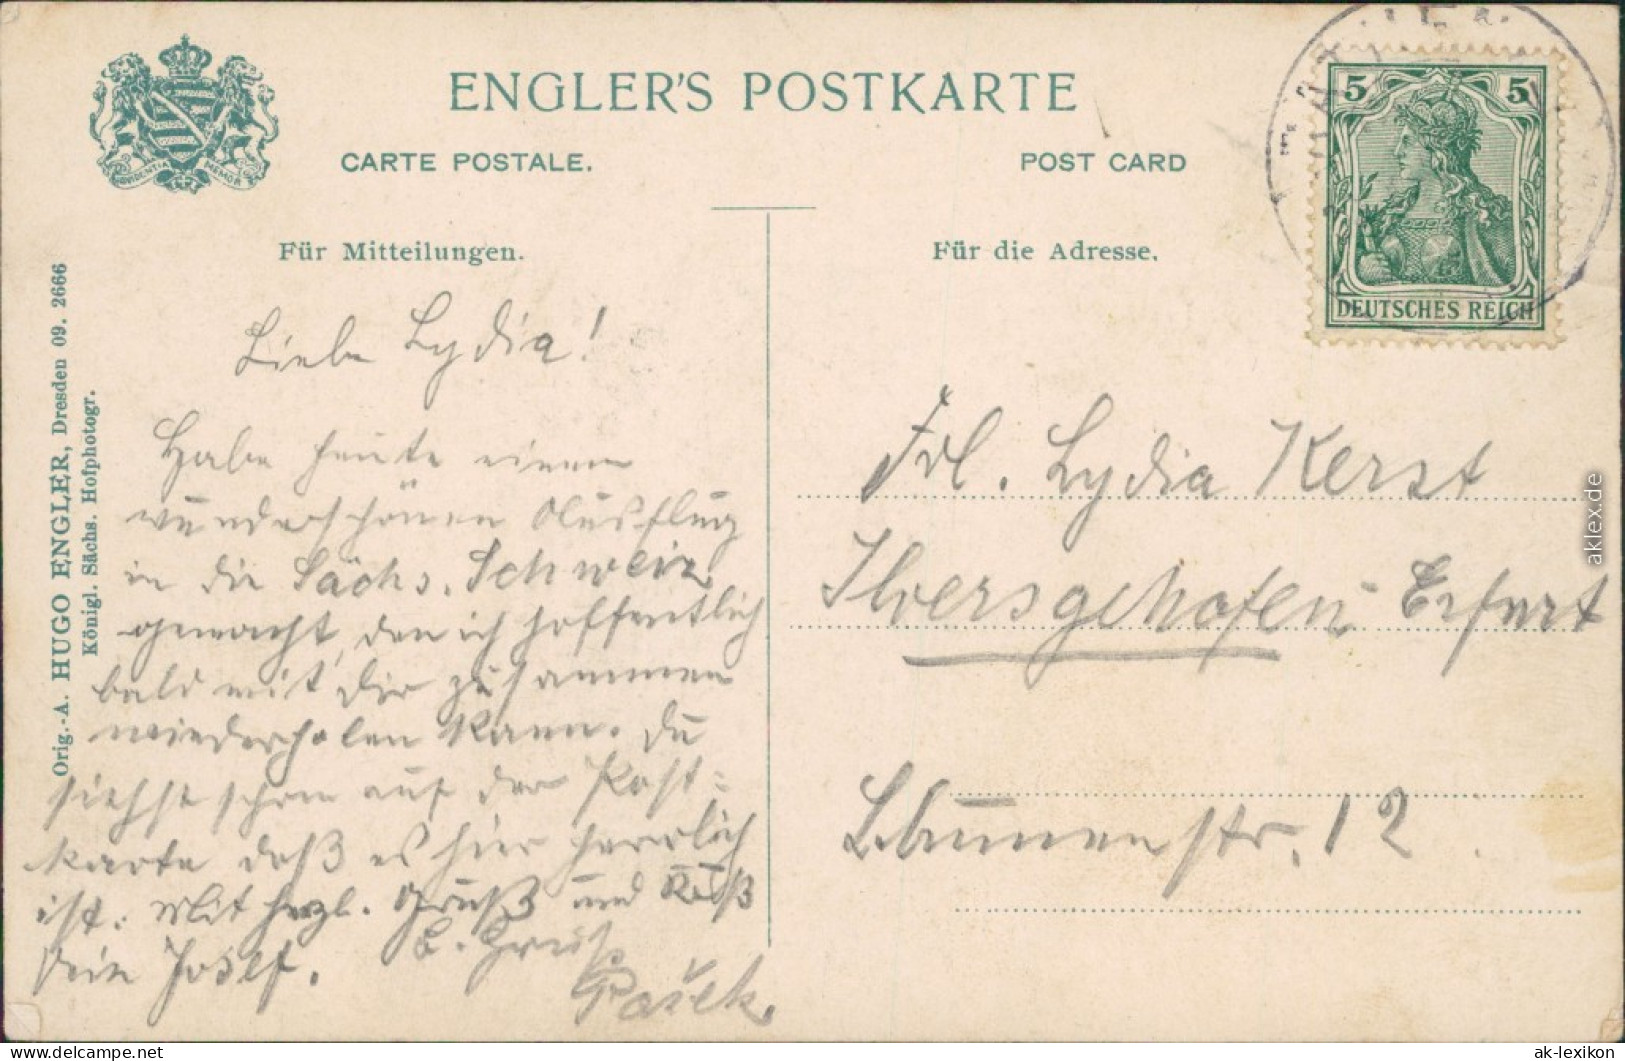 ENGLER'S POSTKARTE
CARTE POSTALE.
POST CARD
PROVIDENTIAE MEMOR
5 5
DEUTSCHES REICH
Für Mitteilungen.
Für die Adresse.
Orig.-A. HUGO ENGLER, Dresden 09. 2666
Königl. Sächs. Hofphotogr.
Liebe Lydia!
Habe heute einen
wunderschönen Ausflug
in die Sächs. Schweiz
gemacht, den ich hoffentlich
bald mit Dir zusammen
wiederholen kann. Du
siehst schon auf der Post-
karte daß es hier herrlich
ist. Mit herzl. Gruß und Kuß
Dein Josef.
b. Gruß
Pašek.
Frl. Lydia Kerst
Ilversgehofen Erfurt
Blumenstr. 12
aklex.de
delcampe.net
ak-lexikon